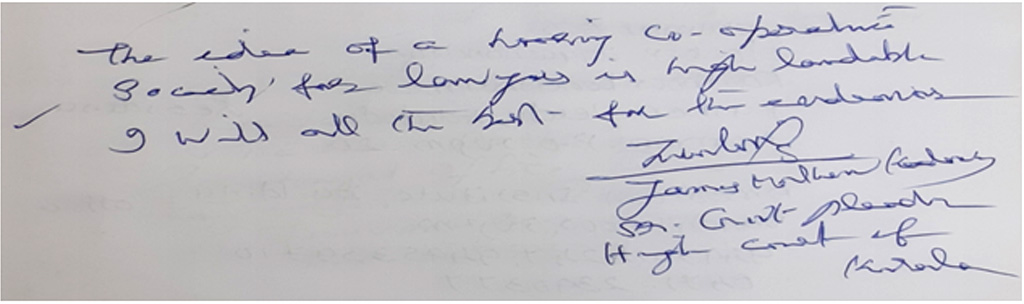 The idea of a housing co-operative
Society for lawyers is high laudable
I will all the best for the endeavour
James
Sr. Govt pleader
High court of
Kerala